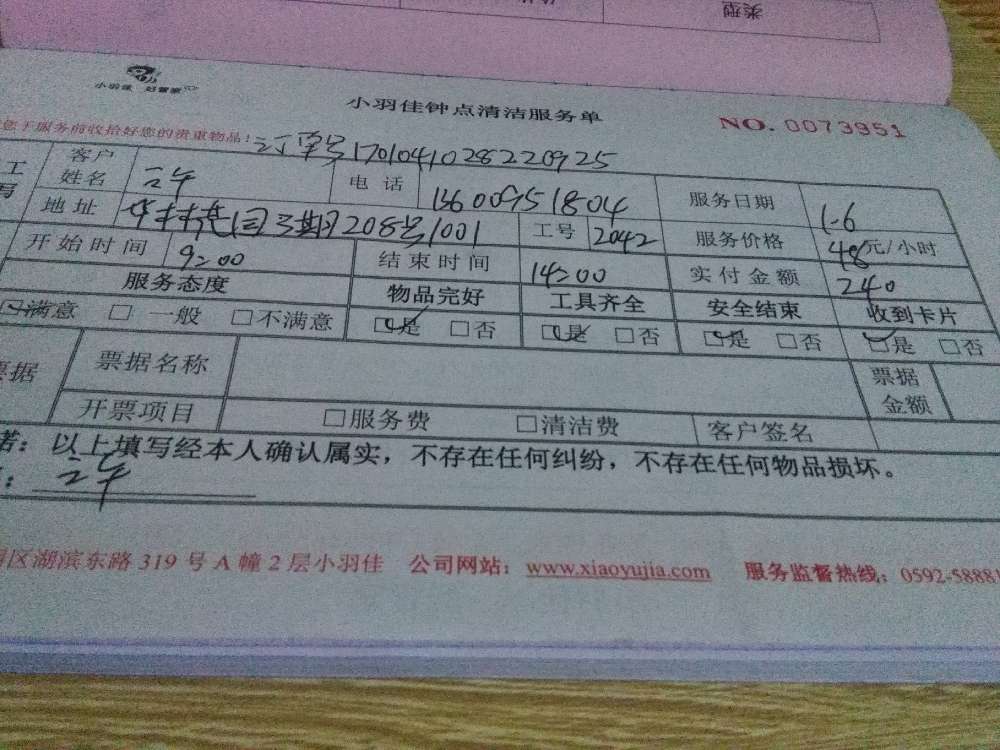 类型
小羽佳 好管家
小羽佳钟点清洁服务单
NO. 0073951
于服务前收拾好您的贵重物品!
订单号1701041028220925
工 客户姓名 电话 服务日期 1-6
地址 三期208号1001 工号 2042 服务价格 48元/小时
开始时间 9:00 结束时间 14:00 实付金额 240
服务态度 物品完好 工具齐全 安全结束 收到卡片
☑满意 □一般 □不满意 ☑是 □否 ☑是 □否 ☑是 □否 ☑是 □否
据 票据名称 票据金额
开票项目 □服务费 □清洁费 客户签名
诺:以上填写经本人确认属实,不存在任何纠纷,不存在任何物品损坏。
区湖滨东路 319 号 A 幢 2 层小羽佳 公司网站:www.xiaoyujia.com 服务监督热线:0592-58881